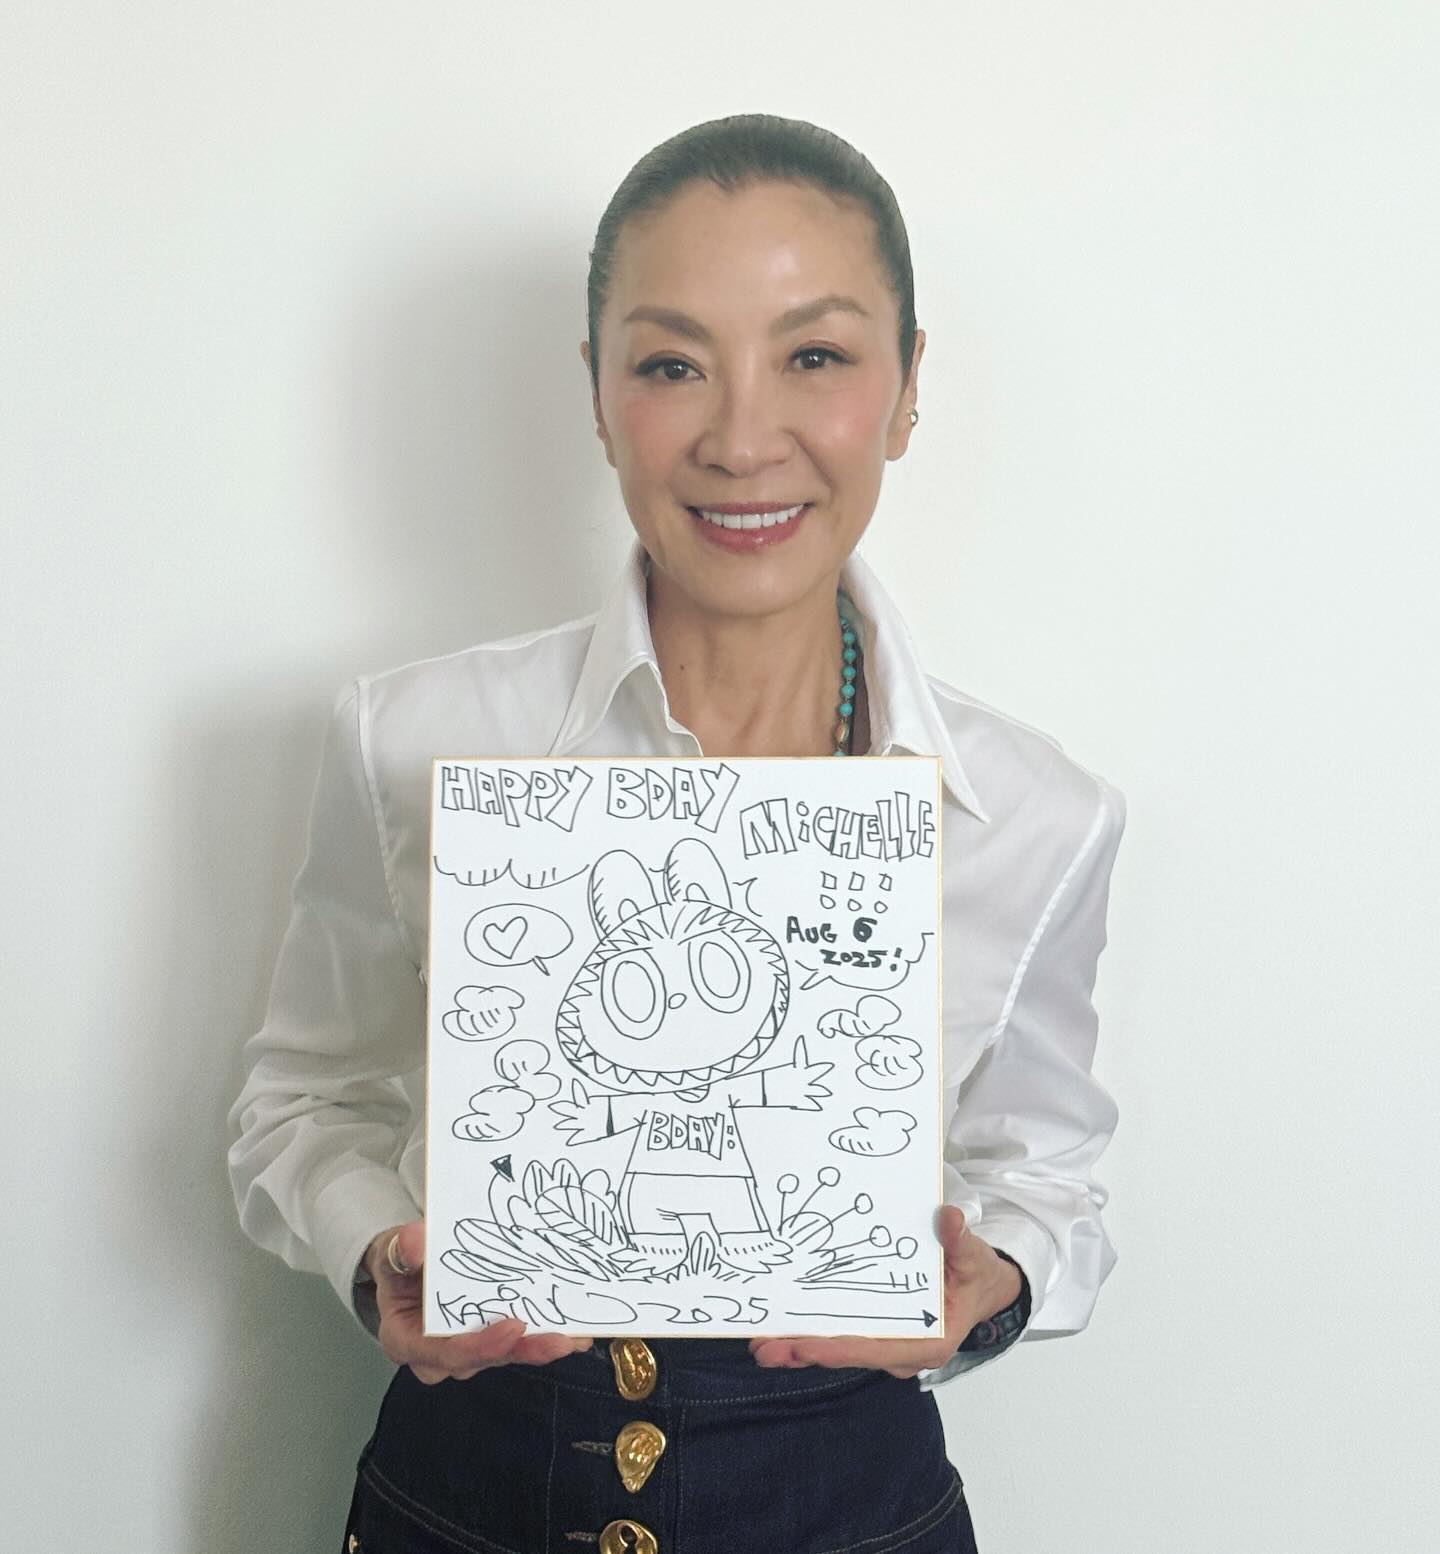 HAPPY BDAY
MiCHELLE
!!!
AUG 6
2025!
BDAY!
KASiNG 2025